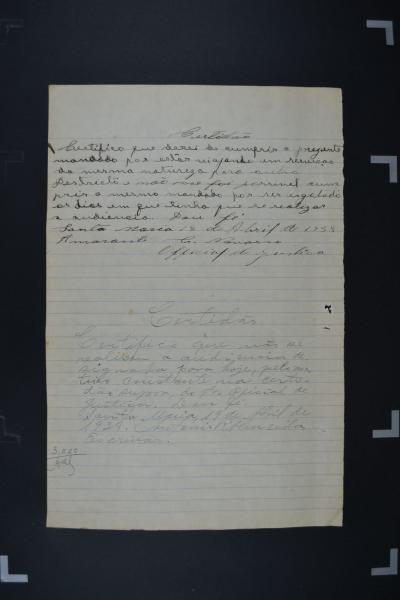 Certidão
Certifico que deixei de cumprir o presente
mandado por estar viajando em serviço
da mesma natureza para outro
Destricto e não me foi possivel cum
prir o mesmo mandado por ser esgotado
os dias em que tinha que se realizar
a audiencia. Dou fé
Santa Maria 18 de Abril de 1938
Amarante
Official de Justiça
Certidão
Certifico que não se
realizou a audiencia de
signada para hoje, pelo mo
tivo constante na certi
dão supra, do Sr. Oficial de
Justiça. Dou fé.
Santa Maria, 19 de Abril de
1938.
Escrivão.
3.000